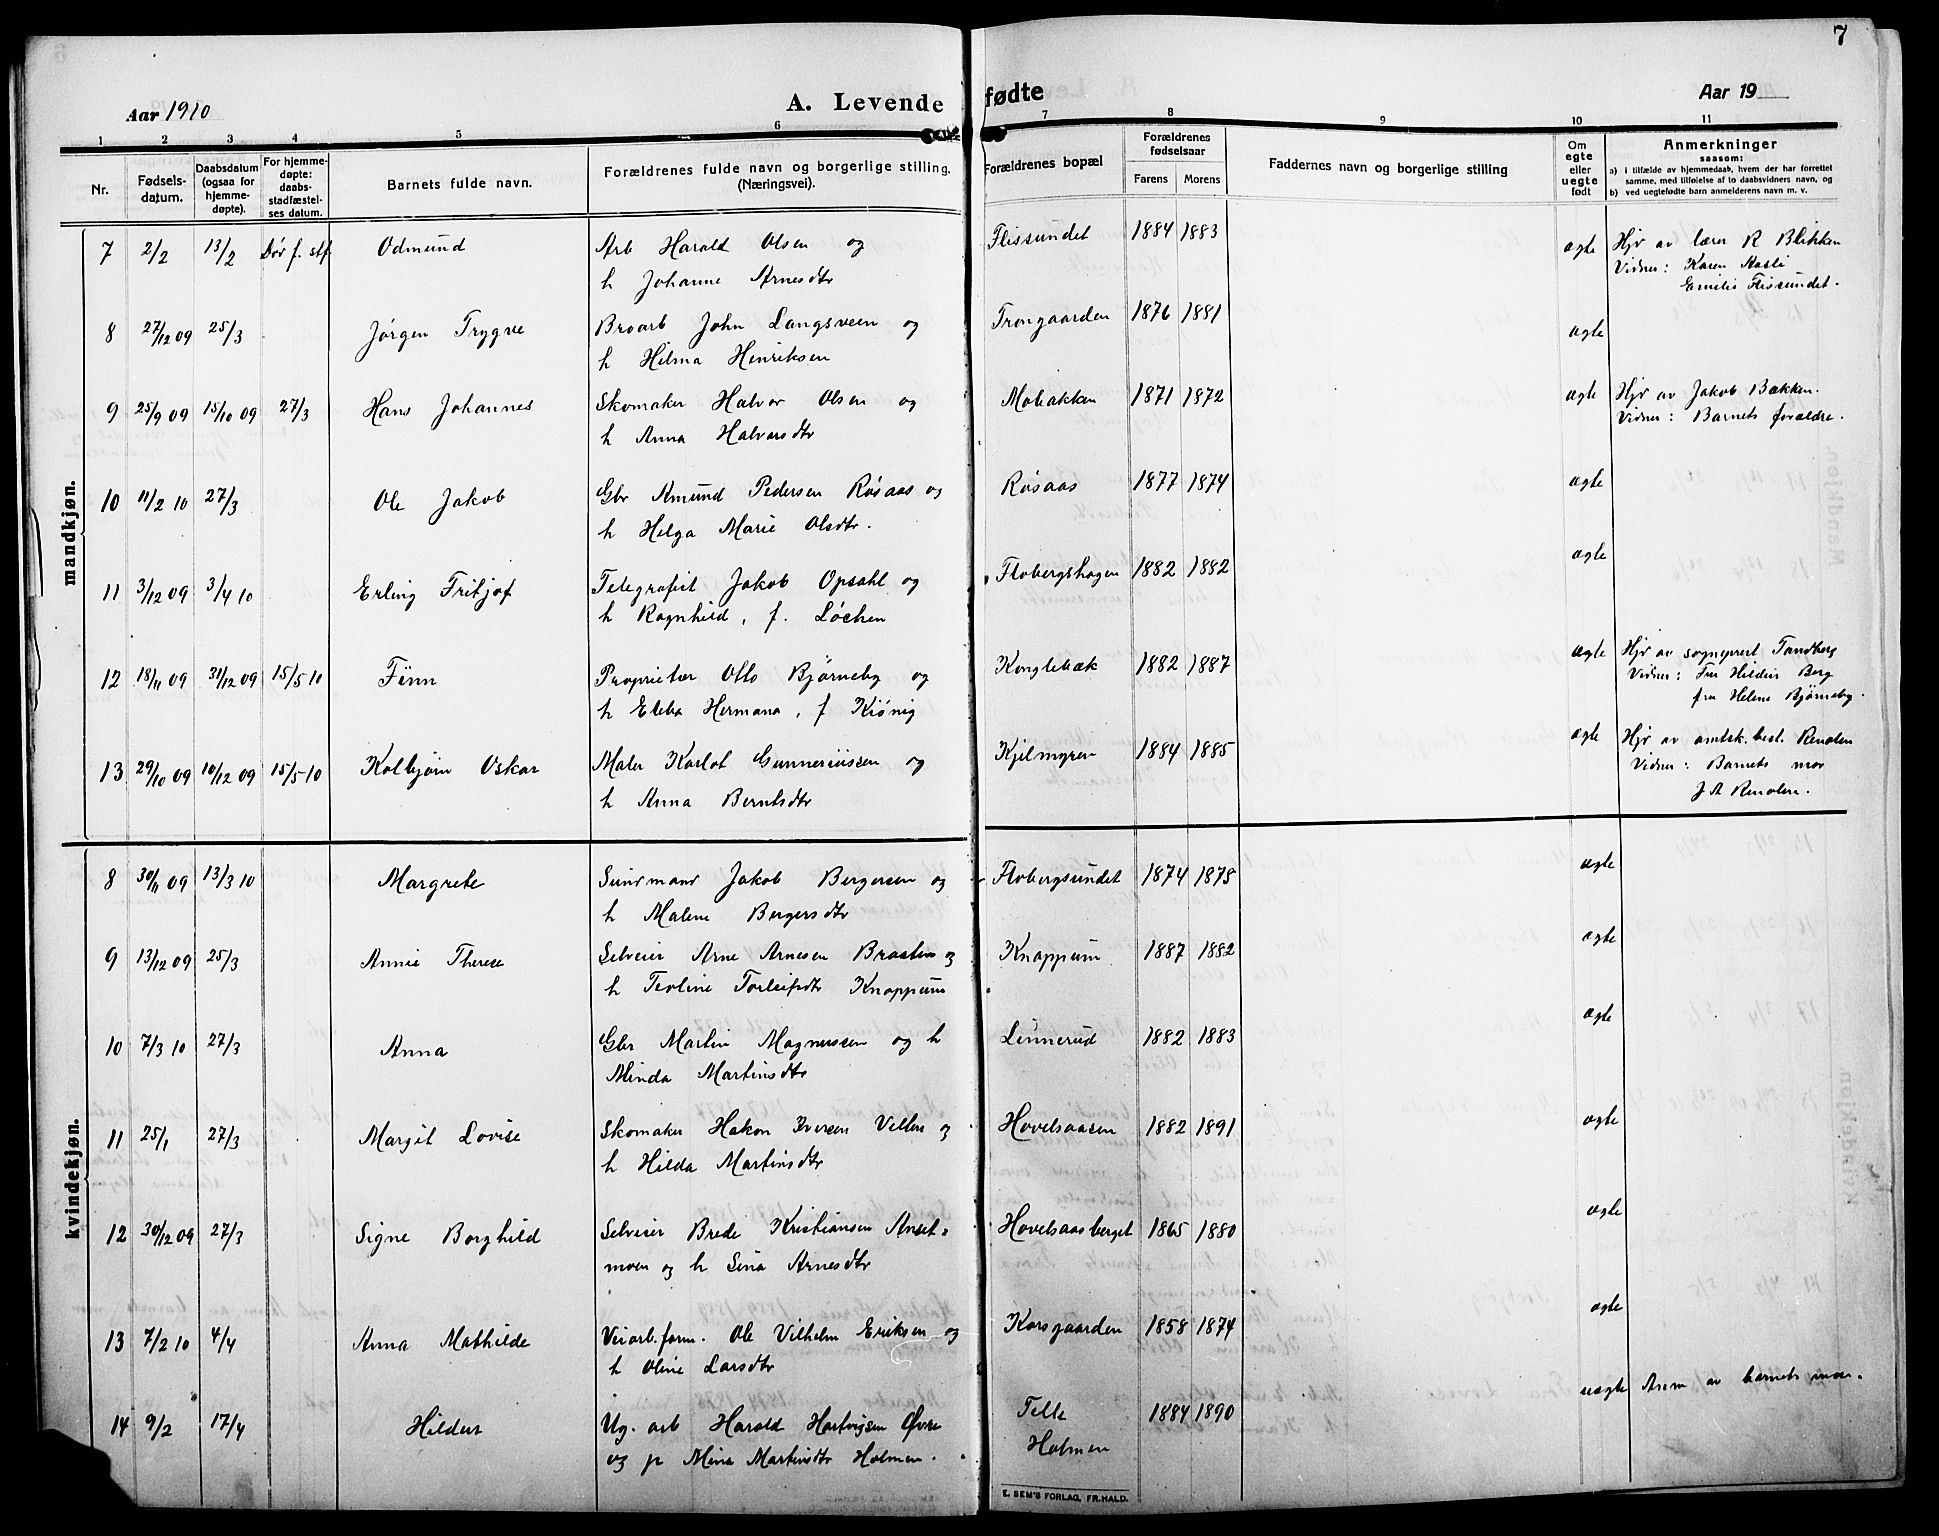 7
Aar 1910 A. Levende fødte Aar 19
1 2 3 4 5 6 7 8 9 10 11
Nr. Fødselsdatum. Daabsdatum (ogsaa for hjemmedøpte). For hjemmedøpte: daabsstadfæstelses datum. Barnets fulde navn. Forældrenes fulde navn og borgerlige stilling. (Næringsvei). Forældrenes bopæl Forældrenes fødselsaar Farens Morens Faddernes navn og borgerlige stilling Om egte eller uegte født Anmerkninger saasom:
a) i tilfælde av hjemmedaab, hvem der har forrettet samme, med tilføielse af to daabsvidners navn, og
b) ved uegtefødte barn anmelderens navn m. v.
mandkjøn.
7 2/2 13/2 Dør f. stf. Odmund Arb Harald Olsen og Flissundet 1884 1883 ægte Hjv av lærer R Blikken
h Johanne Arnesdtr Vidner: Karen Aasli
Emilie Flissundet.
8 27/12 09 25/3 Jørgen Trygve Broarb John Langsveen og Trongaarden 1876 1881 ægte
h Hilma Henriksen
9 25/9 09 15/10 09 27/3 Hans Johannes Skomaker Halvor Olsen og Mobakken 1871 1872 ægte Hjv av Jakob Bækken.
h Anna Halvorsdtr Vidner: Barnets forældre.
10 11/2 10 27/3 Ole Jakob Gbr Amund Pedersen Røsaas og Røsaas 1877 1874 ægte
h Helga Marie Olsdtr.
11 3/12 09 3/4 10 Erling Fritjof Telegrafist Jakob Opsahl og Flobergshagen 1882 1882 ægte
h Ragnhild, f. Løchen
12 18/11 09 31/12 09 15/5 10 Finn Proprietær Otto Bjørneby og Konglebæk 1882 1887 ægte Hjv av sogneprest Tandberg
h Ebba Hermana, f Kiønig Vidner: Fru Hildur Berg
fru Helene Bjørneby.
13 29/10 09 10/12 09 15/5 10 Kolbjørn Oskar Maler Karlot Gunneriussen og Kjelmyren 1884 1885 ægte Hjv av amtsk.best. Renolen
h Anna Berntsdtr Vidner: Barnets mor
J A Renolen.
kvindekjøn.
8 30/11 09 13/3 10 Margrete Sundmand Jakob Bergersen og Flobergsundet 1874 1875 ægte
h Malene Bergersdtr
9 13/12 09 25/3 Annie Therese Selveier Arne Arnesen Braaten og Knappum 1887 1882 ægte
h Teoline Torleifsdtr Knappum
10 7/3 10 27/3 Anna Gbr Martin Magnussen og h Linnerud 1882 1883 ægte
Minda Martinsdtr
11 25/1 27/3 Margit Lovise Skomaker Hakon Iversen Velten og Hovelsaasen 1882 1891 ægte
h Hilda Martinsdtr
12 30/12 09 27/3 Signe Borghild Selveier Brede Kristiansen Anset- Hovelsaasberget 1865 1880 ægte
moen og h Sina Arnesdtr
13 7/2 10 4/4 Anna Mathilde Veiarb.form. Ole Vilhelm Eriksen og Korsgaarden 1858 1874 ægte
h Oline Larsdtr
14 9/2 17/4 Hildur Ug. arb Harald Hartvigsen Øvre Telle 1884 1890 uægte Anm av barnets mor.
og p Mina Martinsdtr Holmen. Holmen
E. SEM'S FORLAG, FR.HALD.